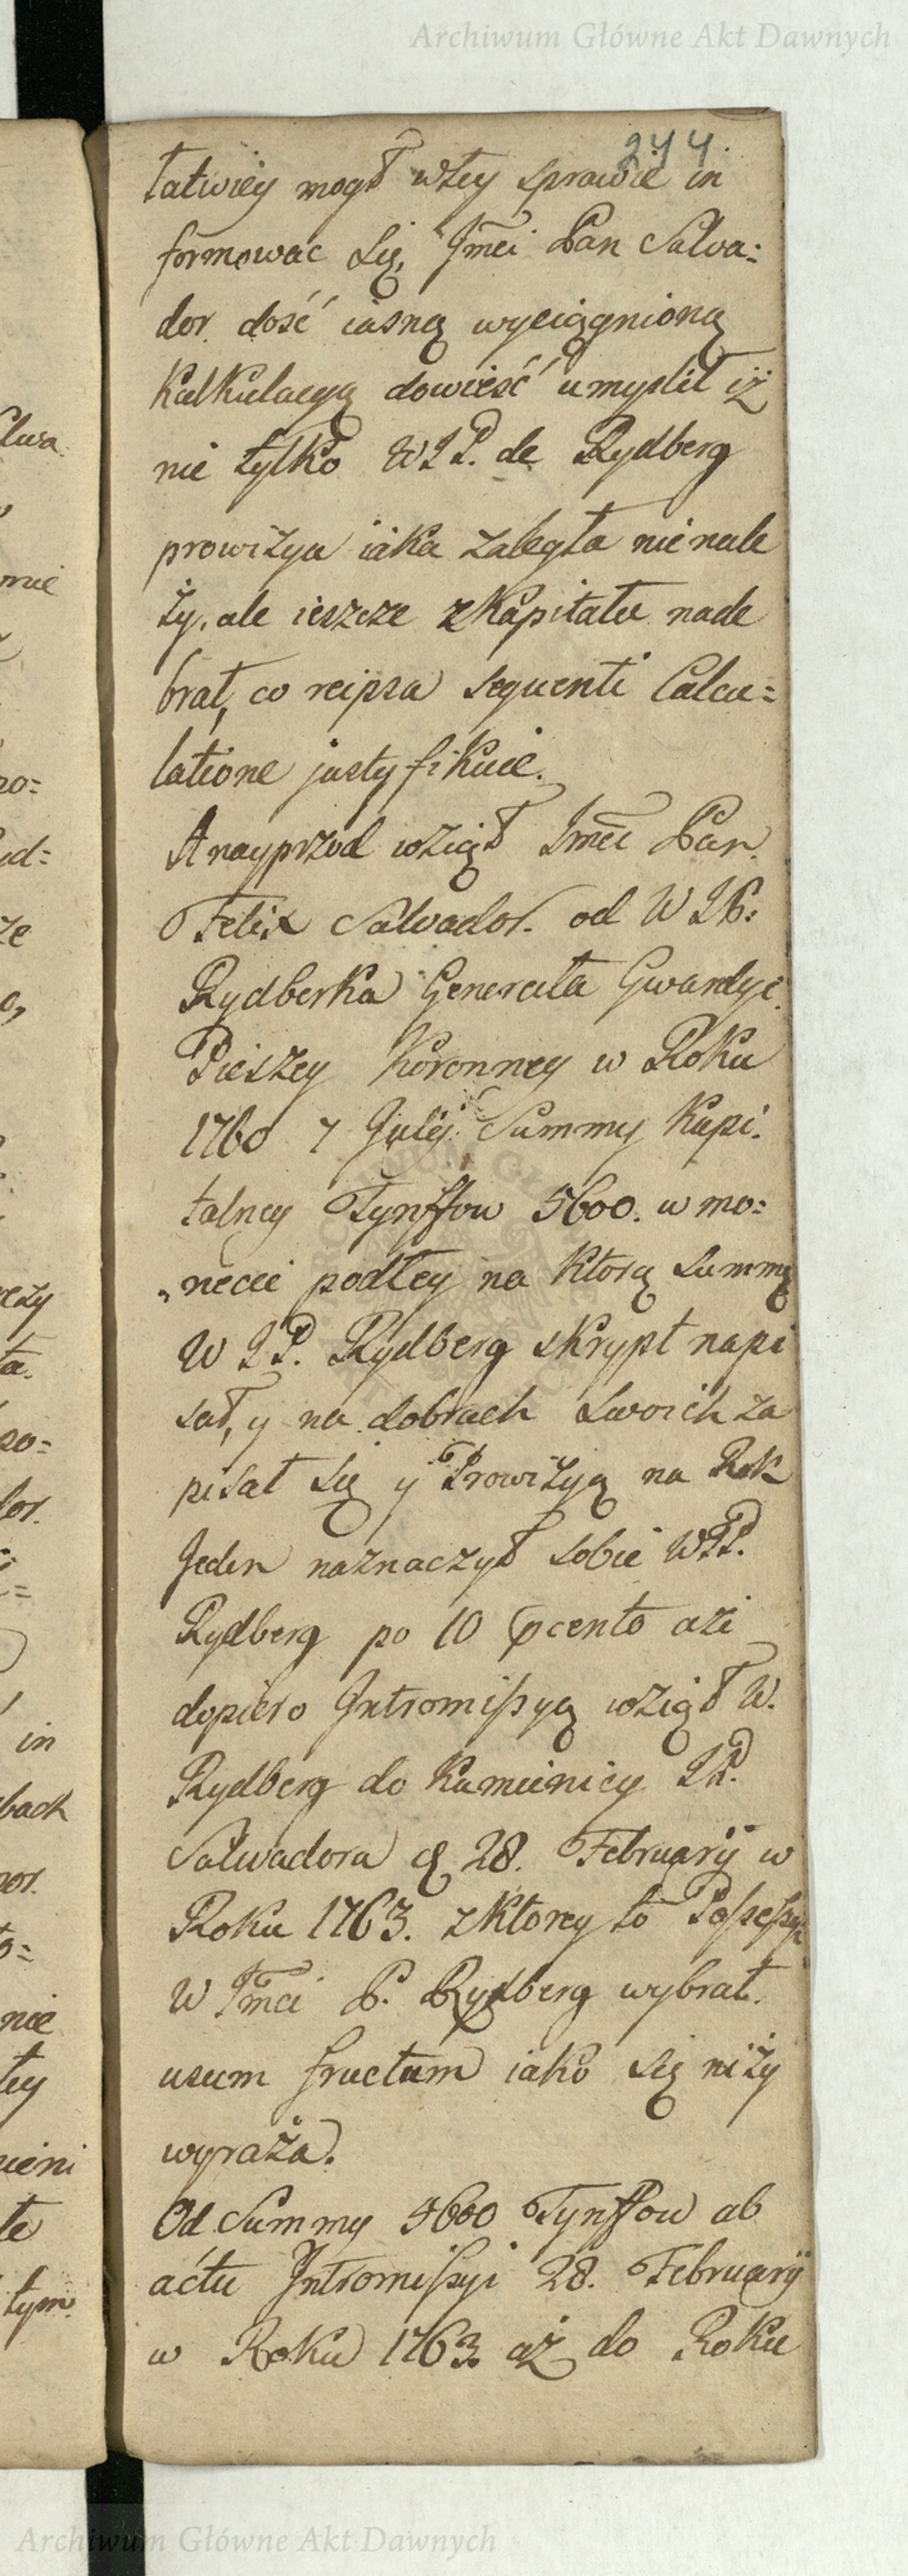 Archiwum Główne Akt Dawnych
244.
łatwiey mogł wtey sprawie in
formować Się, Jmći Pan Salva:
dor. dość iasną wyciągnioną
Kalkulacyą dowieść umyslił iż
nie tylko WJP. de Rydberg
prowizya iaka zaległa nie nale
ży, ale ieszcze z Kapitału nade
brał, co reipsa sequenti Calcu=
latione justyfikuie.
A nayprzod wziął Jmći Pan
Felix Salvador. od WJP:
Rydberka Generała Gwardyi
Pieszey Koronney w Roku
1760 7 Julij Summy Kapi:
talney Tynffow 5600. w mo=
necie podłey na Ktorą Summę
W JP. Rydberg skrypt napi
sał, y na dobrach Swoich za
pisał się y Prowizyą na Rok
Jeden naznaczył sobie WJP.
Rydberg po 10 pcento azi
dopiero Intromissyą wziął W.
Rydberg do Kamienicy JP.
Salvadora d. 28. Februarij w
Roku 1763. z Ktorey to Possessyi
W Jmći P. Rydberg wybrał.
usum fructum iako się niży
wyraża.
Od Summy 5600 Tynffow ab
actu Intromissyi 28. Februarij
w Roku 1763. aż do Roku
Archiwum Główne Akt Dawnych